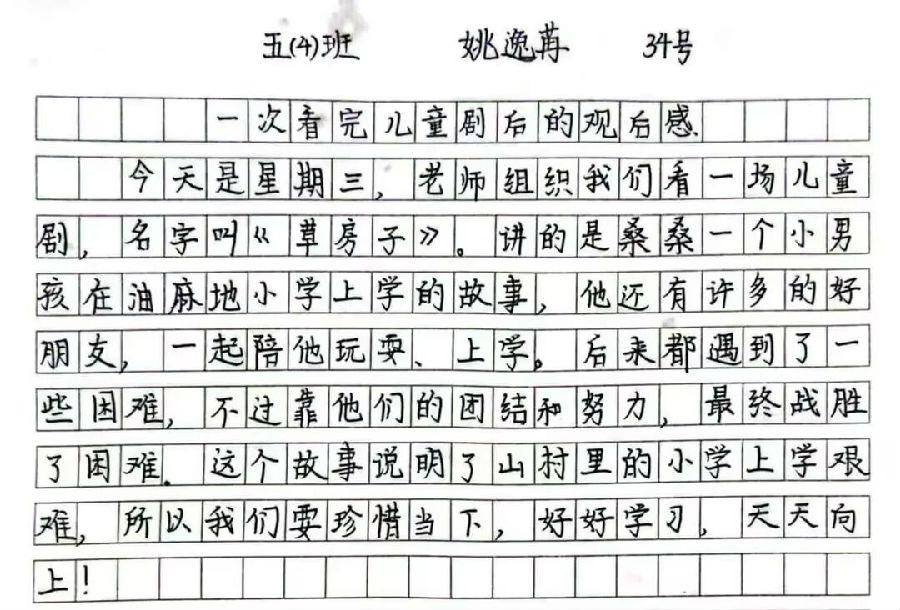 五(4)班 姚逸苒 34号
一次看完儿童剧后的观后感.
今天是星期三，老师组织我们看一场儿童
剧，名字叫《草房子》。讲的是桑桑一个小男
孩在油麻地小学上学的故事，他还有许多的好
朋友，一起陪他玩耍、上学。后来都遇到了一
些困难，不过靠他们的团结和努力，最终战胜
了困难．这个故事说明了山村里的小学上学艰
难，所以我们要珍惜当下，好好学习，天天向
上！